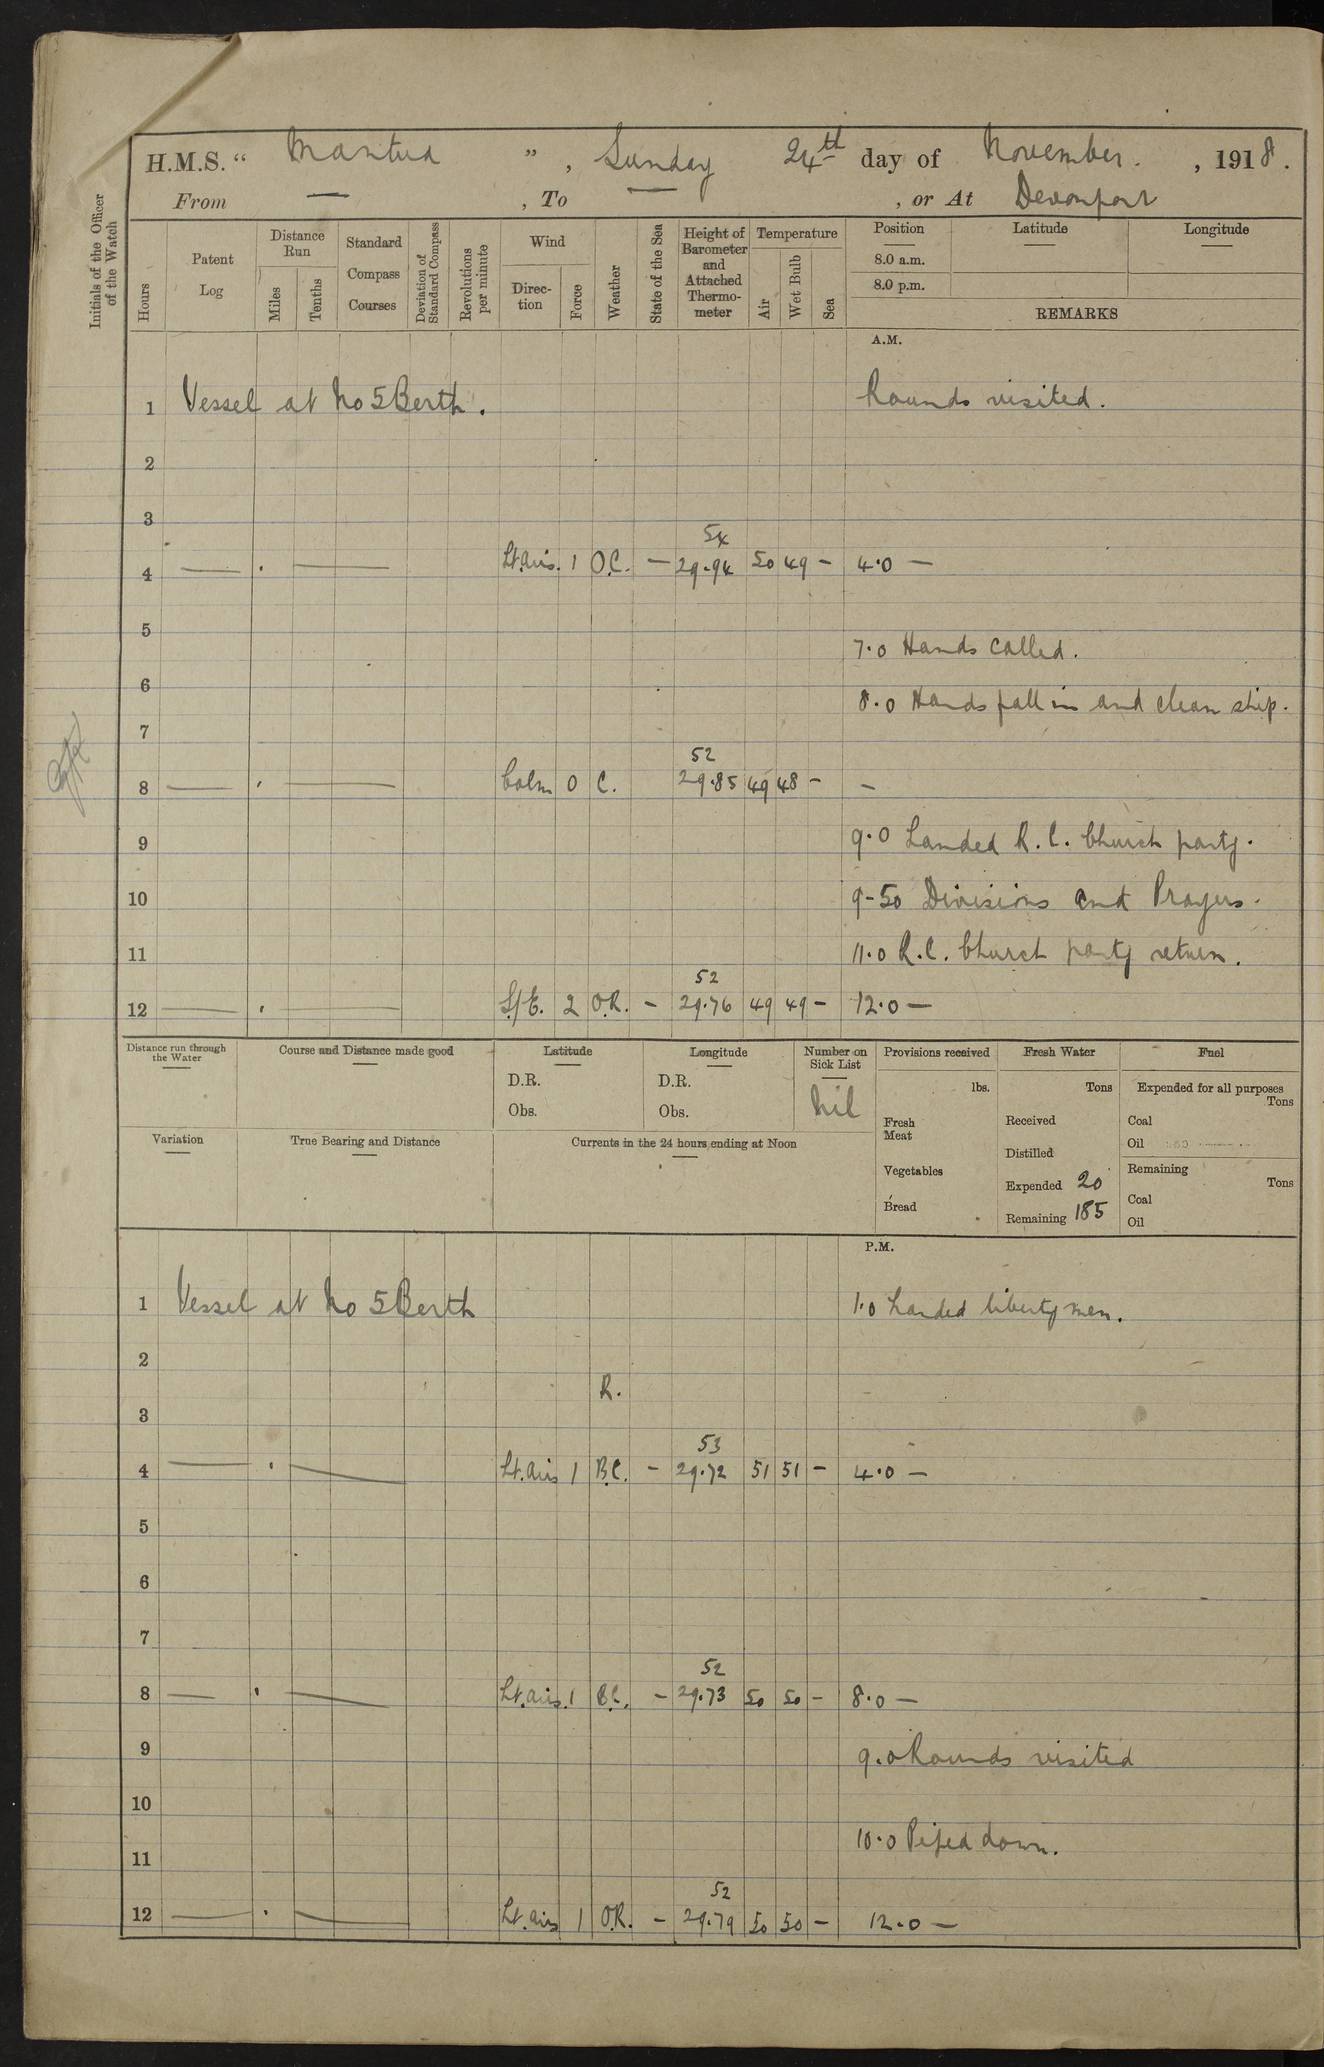 H.M.S. " Mantua ", Sunday 24th day of November. , 1918.
From — , To — , or At Devonport
Initials of the Officer of the Watch
Hours
Patent Log
Distance Run
Miles
Tenths
Standard Compass Courses
Deviation of Standard Compass
Revolutions per minute
Wind
Direction
Force
Weather
State of the Sea
Height of Barometer and Attached Thermometer
Temperature
Air
Wet Bulb
Sea
Position
8.0 a.m.
8.0 p.m.
Latitude
Longitude
REMARKS
A.M.
1 Vessel at No 5 Berth. Rounds visited.
2
3
54
4 — . — Lt. airs. 1 O.C. — 29.94 50 49 — 4.0 —
5
7.0 Hands called.
6
8.0 Hands fall in and clean ship.
7
52
8 — . — Calm 0 C. 29.85 49 48 — —
9 9.0 Landed R.C. Church party.
10 9-50 Divisions and Prayers.
11 11.0 R.C. Church party return.
52
12 — . — S/E. 2 O.R. — 29.76 49 49 — 12.0 —
Distance run through the Water
Course and Distance made good
Latitude
D.R.
Obs.
Longitude
D.R.
Obs.
Number on Sick List
Nil
Provisions received
lbs.
Fresh Meat
Vegetables
Bread
Fresh Water
Tons
Received
Distilled
Expended 20
Remaining 185
Fuel
Expended for all purposes
Tons
Coal
Oil
Remaining
Tons
Coal
Oil
Variation
True Bearing and Distance
Currents in the 24 hours ending at Noon
P.M.
1 Vessel at No 5 Berth 1.0 Landed liberty men.
2
R.
3
53
4 — . — Lt. airs 1 B.C. — 29.72 51 51 — 4.0 —
5
6
7
52
8 — . — Lt. airs. 1 B.C. — 29.73 50 50 — 8.0 —
9 9.0 Rounds visited
10
10.0 Piped down.
11
52
12 — . — Lt. airs 1 O.R. — 29.79 50 50 — 12.0 —